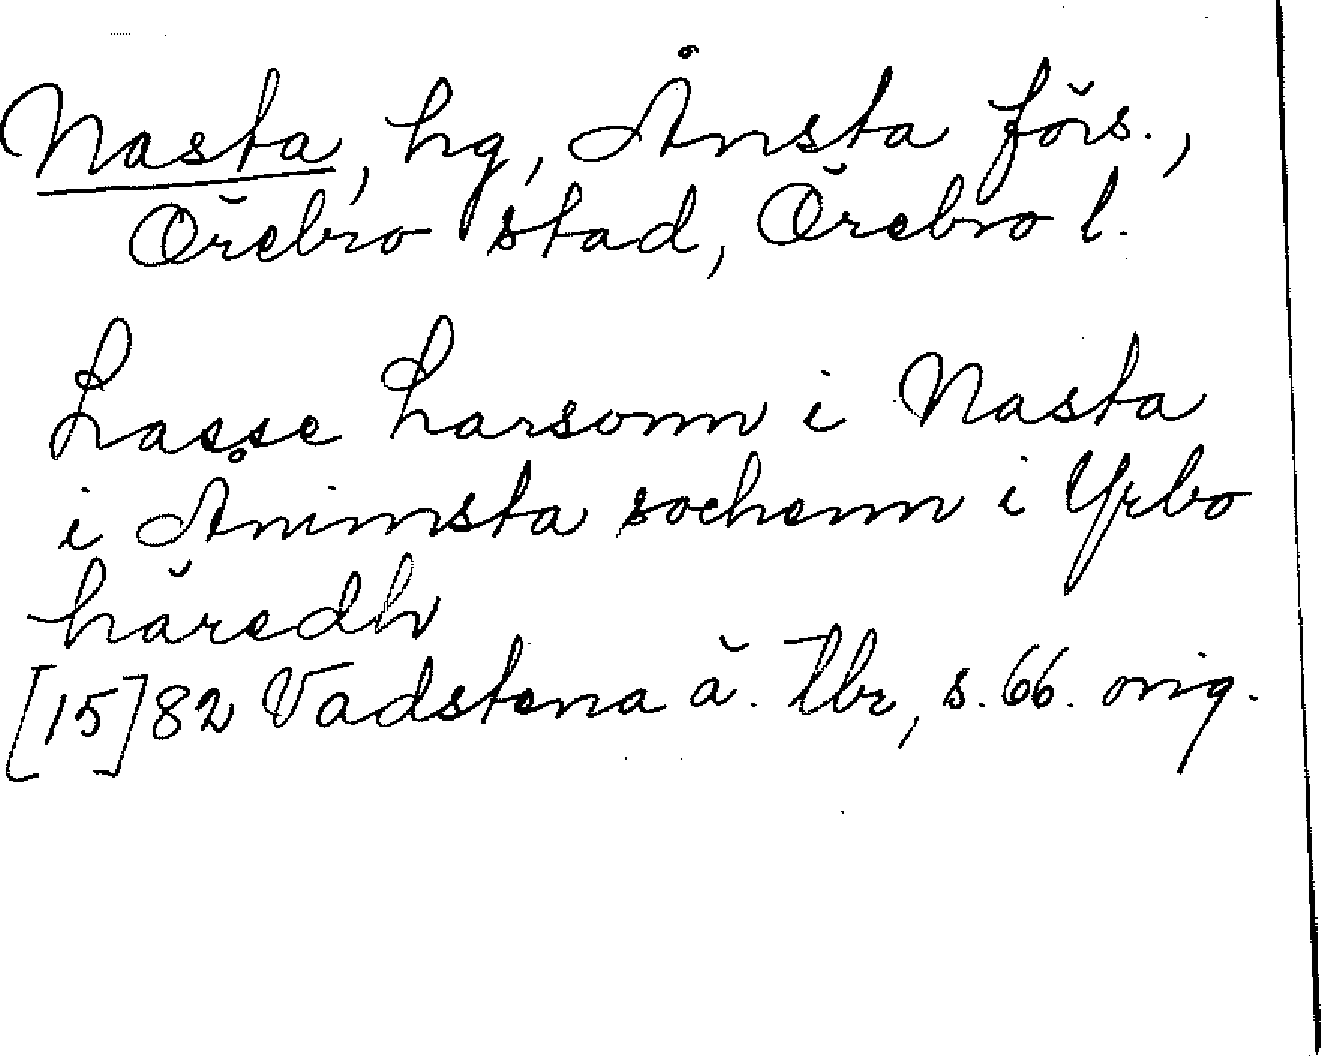 Nasta, hg, Ånsta förs.,
Örebro stad, Örebro l.
Lasse Larsonn i Nasta
i Ånimsta sochenn i Yrbo
häredh
[15]82 Vadstena ä. Tbr, s. 66. orig.